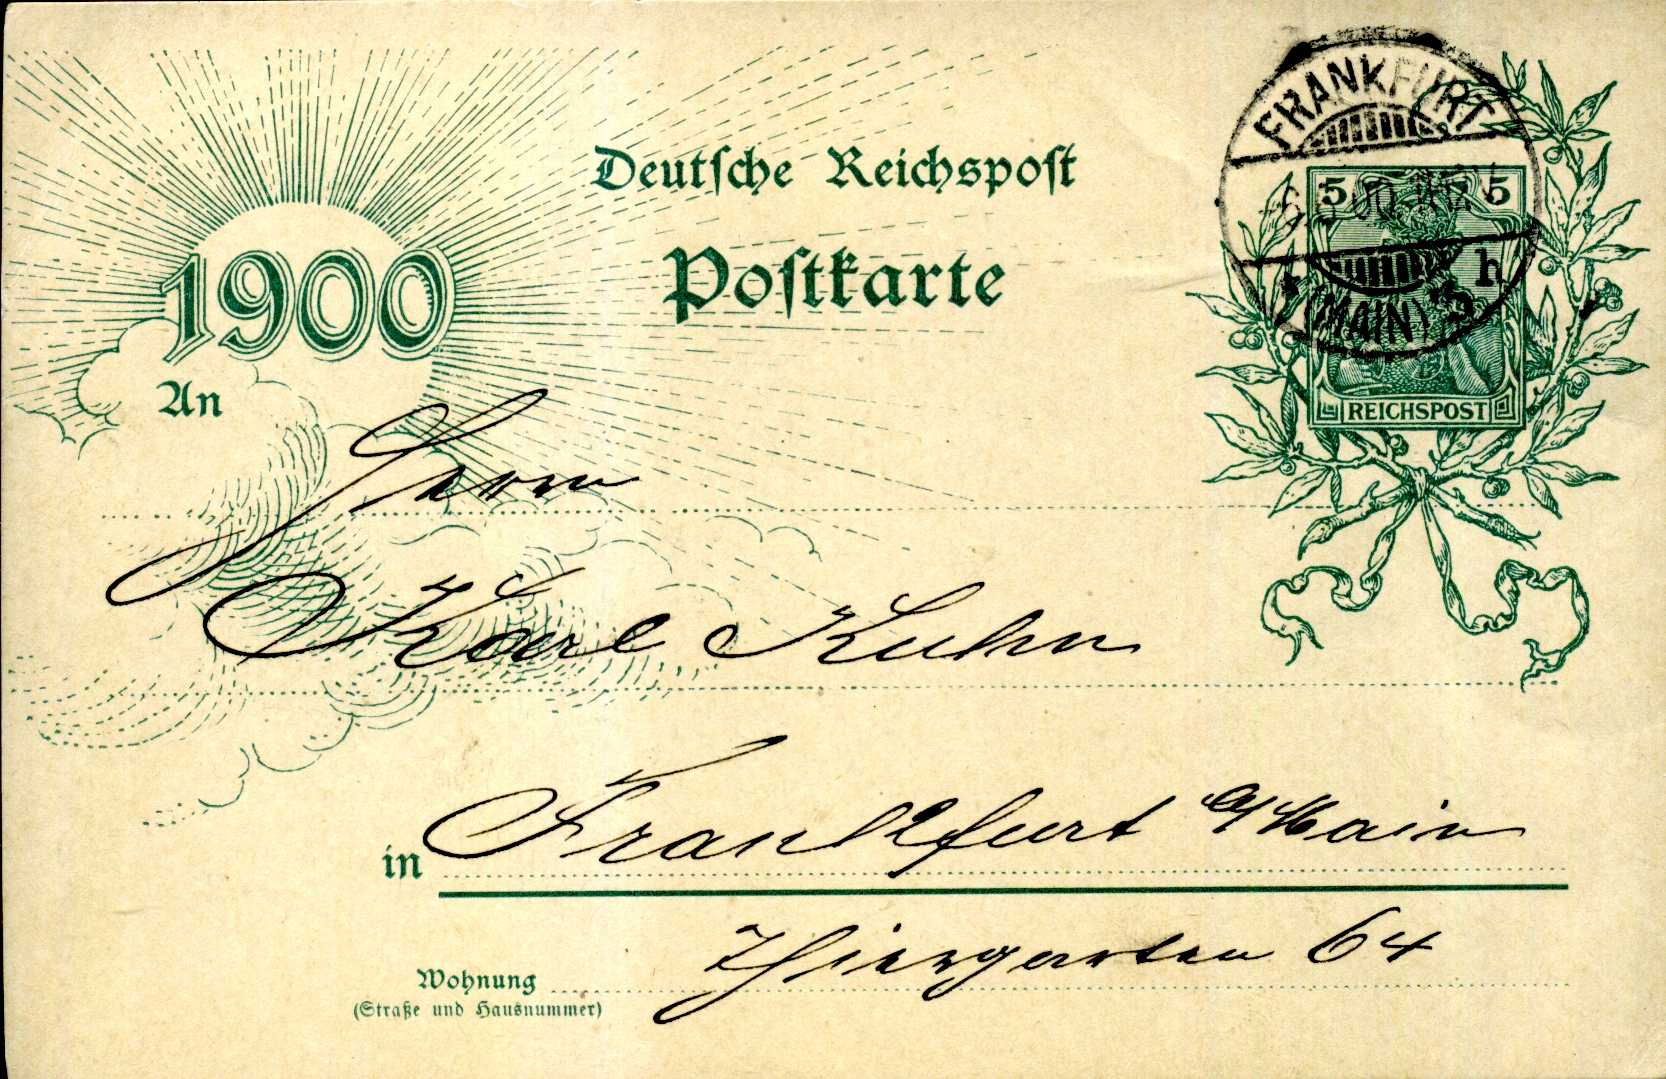 Deutſche Reichspoſt
Poſtkarte
1900
An
FRANKFURT
5 5
h
* (MAIN) *
REICHSPOST
Herrn
Karl Kuhn
in Frankfurt a/Main
Thiergarten 64
Wohnung
(Straße und Hausnummer)